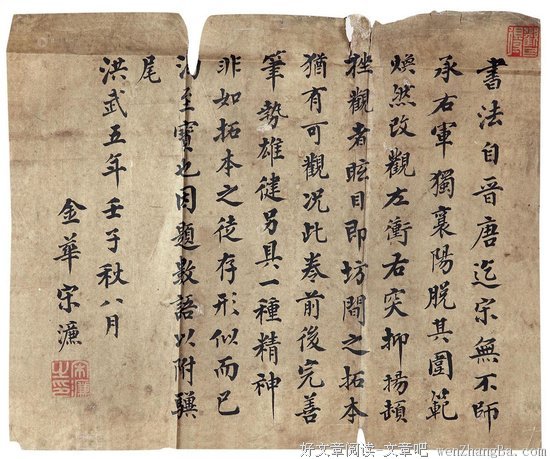 書法自晉唐迄宋無不師
承右軍獨襄陽脫其圍範
煥然改觀左衝右突抑揚頓
挫觀者眩目即坊間之拓本
猶有可觀況此卷前後完善
筆勢雄健另具一種精神
非如拓本之徒存形似而已
至寶也因題數語以附驥
尾
洪武五年壬子秋八月
金華宋濂
宋濂之印
好文章阅读-文章吧 wenZhangBa.com